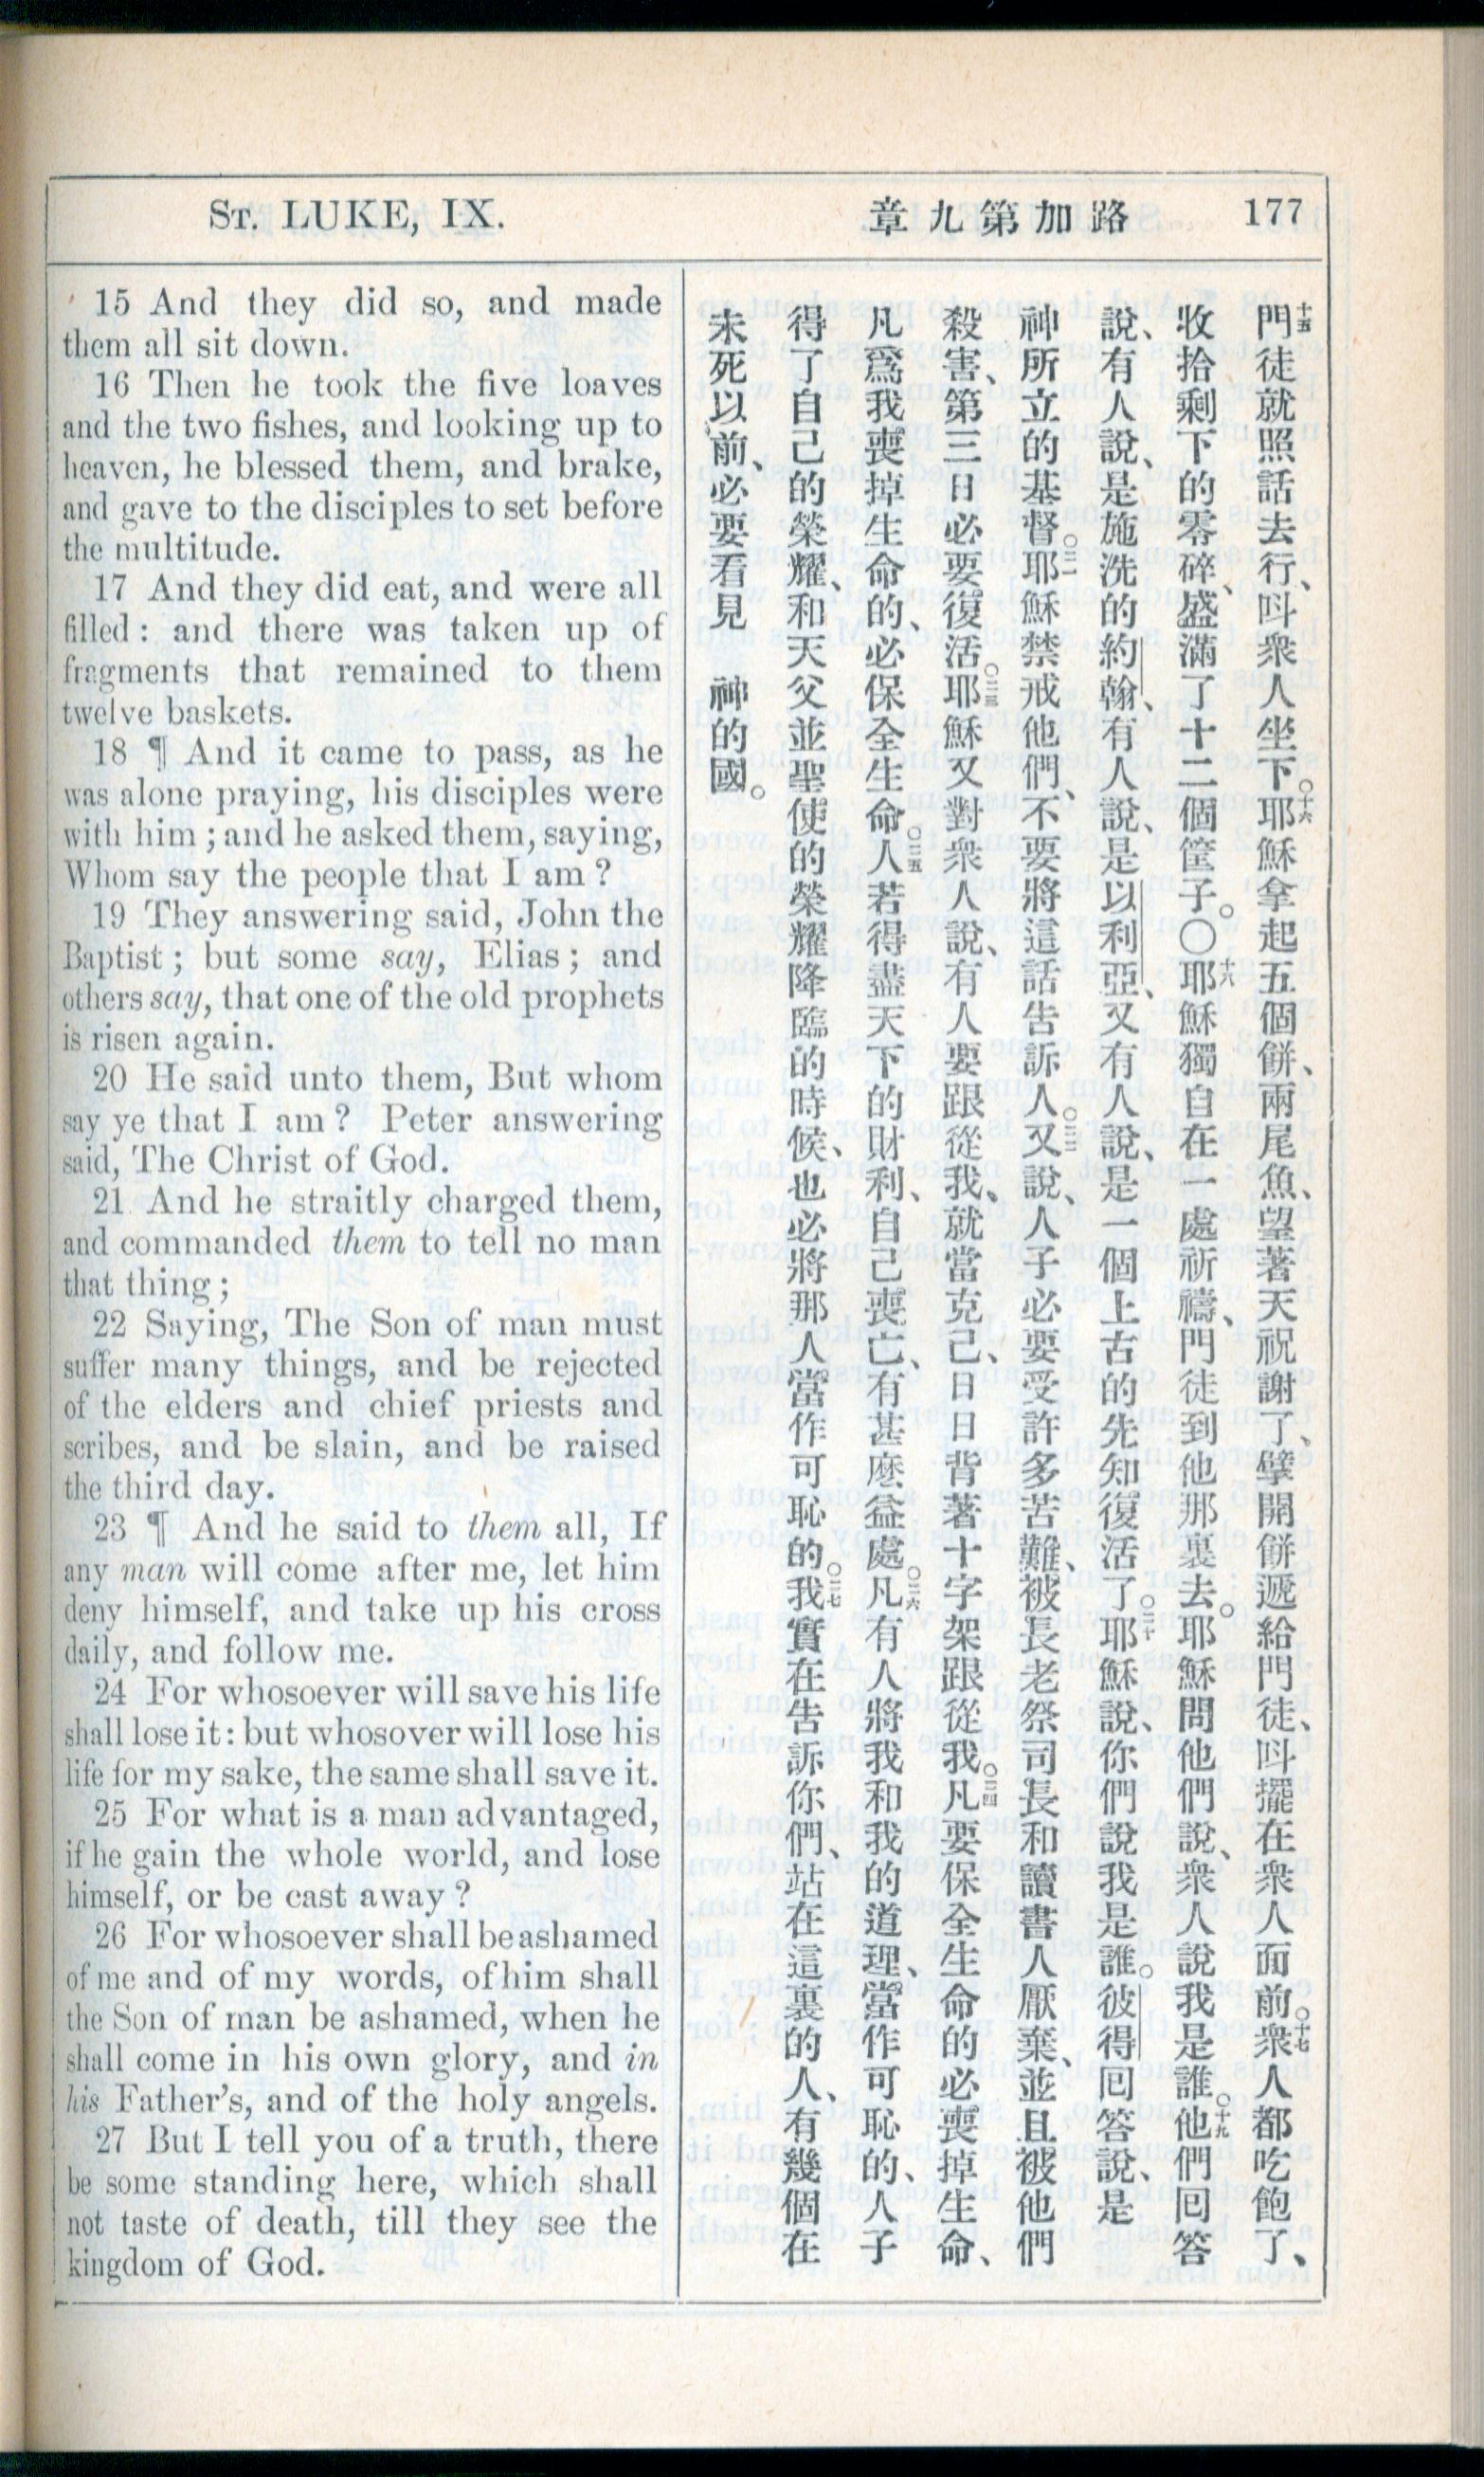 ST. LUKE, IX.
章九第加路
177
15 And they did so, and made
them all sit down.
16 Then he took the five loaves
and the two fishes, and looking up to
heaven, he blessed them, and brake,
and gave to the disciples to set before
the multitude.
17 And they did eat, and were all
filled : and there was taken up of
fragments that remained to them
twelve baskets.
18 ¶ And it came to pass, as he
was alone praying, his disciples were
with him ; and he asked them, saying,
Whom say the people that I am ?
19 They answering said, John the
Baptist ; but some say, Elias ; and
others say, that one of the old prophets
is risen again.
20 He said unto them, But whom
say ye that I am ? Peter answering
said, The Christ of God.
21 And he straitly charged them,
and commanded them to tell no man
that thing ;
22 Saying, The Son of man must
suffer many things, and be rejected
of the elders and chief priests and
scribes, and be slain, and be raised
the third day.
23 ¶ And he said to them all, If
any man will come after me, let him
deny himself, and take up his cross
daily, and follow me.
24 For whosoever will save his life
shall lose it : but whosover will lose his
life for my sake, the same shall save it.
25 For what is a man advantaged,
if he gain the whole world, and lose
himself, or be cast away ?
26 For whosoever shall be ashamed
of me and of my words, of him shall
the Son of man be ashamed, when he
shall come in his own glory, and in
his Father's, and of the holy angels.
27 But I tell you of a truth, there
be some standing here, which shall
not taste of death, till they see the
kingdom of God.
十五門徒就照話去行、呌衆人坐下。○十六耶穌拿起五個餅、兩尾魚、望著天祝謝了、擘開餅遞給門徒、呌擺在衆人面前。○十七衆人都吃飽了、
收拾剩下的零碎、盛滿了十二個筐子。○十八耶穌獨自在一處祈禱、門徒到他那裏去。耶穌問他們說、衆人說我是誰。○十九他們囘答
說、有人說、是施洗的約翰、有人說、是以利亞、又有人說、是一個上古的先知復活了。○二十耶穌說、你們說我是誰。彼得囘答說、是
神所立的基督。○二一耶穌禁戒他們、不要將這話告訴人。○二二又說、人子必要受許多苦難、被長老祭司長和讀書人厭棄、並且被他們
殺害、第三日必要復活。○二三耶穌又對衆人說、有人要跟從我、就當克己、日日背著十字架跟從我。○二四凡要保全生命的必喪掉生命、
凡爲我喪掉生命的、必保全生命。○二五人若得盡天下的財利、自己喪亡、有甚麽益處。○二六凡有人將我和我的道理、當作可恥的、人子
得了自己的榮耀、和天父並聖使的榮耀降臨的時候、也必將那人當作可恥的。○二七我實在告訴你們、站在這裏的人、有幾個在
未死以前、必要看見 神的國。